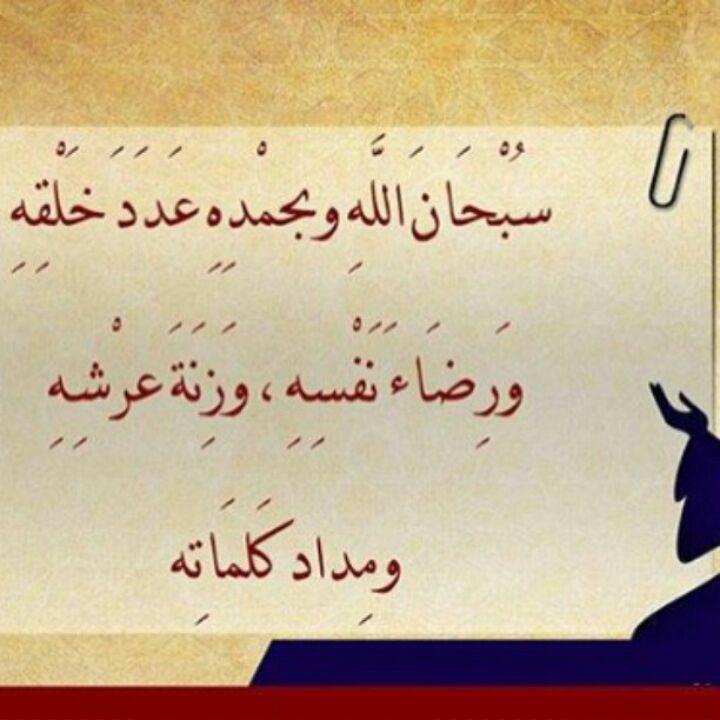 سُبْحَانَ اللَّهِ وبحمْدِهِ عَدَدَ خَلْقِهِ
وَرِضَاءَ نَفْسِهِ ، وَزِنَةَ عرْشِهِ
ومِداد كَلَمَاتِه